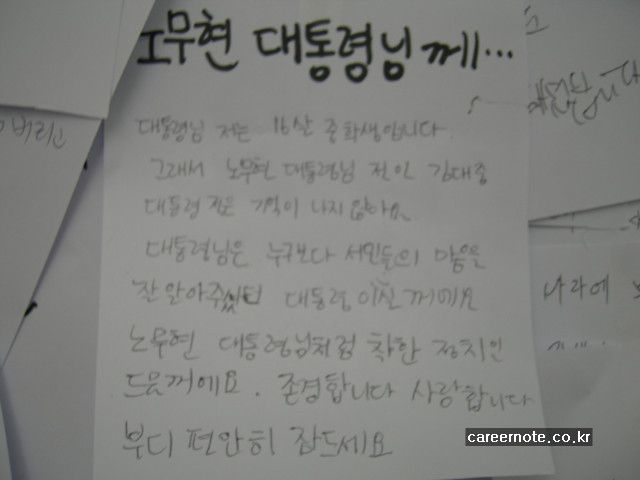 노무현 대통령님께...
대통령님 저는 16살 중학생입니다.
그래서 노무현 대통령님 전인 김대중
대통령 적은 기억이 나지 않아요.
대통령님은 누구보다 서민들의 마음을
잘 알아주셨던 대통령이실꺼에요
노무현 대통령님처럼 착한 정치인
드믈꺼에요. 존경합니다 사랑합니다
부디 편안히 잠드세요
버리고
나라에
careernote.co.kr